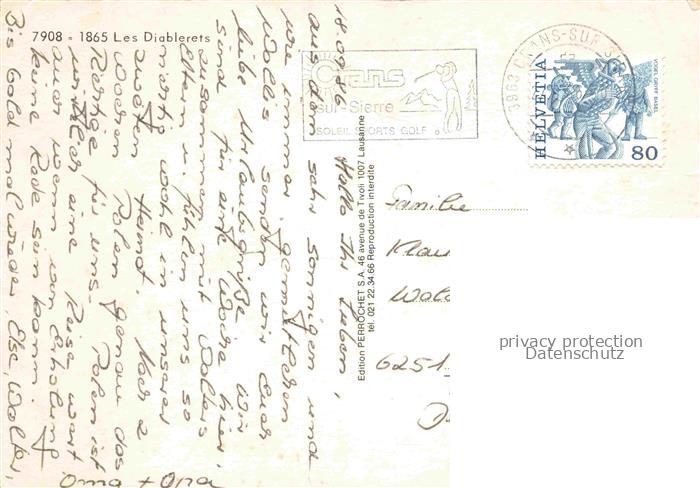 7908 - 1865 Les Diablerets
18.09.86 Hallo Ihr Lieben,
aus dem sehr sonnigen und
wie immer gemütlichen
Wallis senden wir Euch
liebe Urlaubsgrüße. Wir
sind für eine Woche hier,
zusammen mit Walters
Eltern u. fühlen uns so
richtig wohl in unserer
zweiten Heimat. Nach 2
Wochen Polen genau das
Richtige für uns. Polen ist
eine Reise wert
auch wenn von Erholung
keine Rede sein kann.
Bis bald mal wieder, Else, Walter,
Oma + Opa
Edition PERROCHET S.A. 46 avenue de Tivoli 1007 Lausanne
tél. 021 22.34.66 Reproduction interdite
Crans
sur-Sierre
SOLEIL SPORTS GOLF
3963 CRANS-SUR-SIERRE
HELVETIA
VOGEL GRYFF BASEL
80
Familie
Klau
Wald
6251
privacy protection
Datenschutz